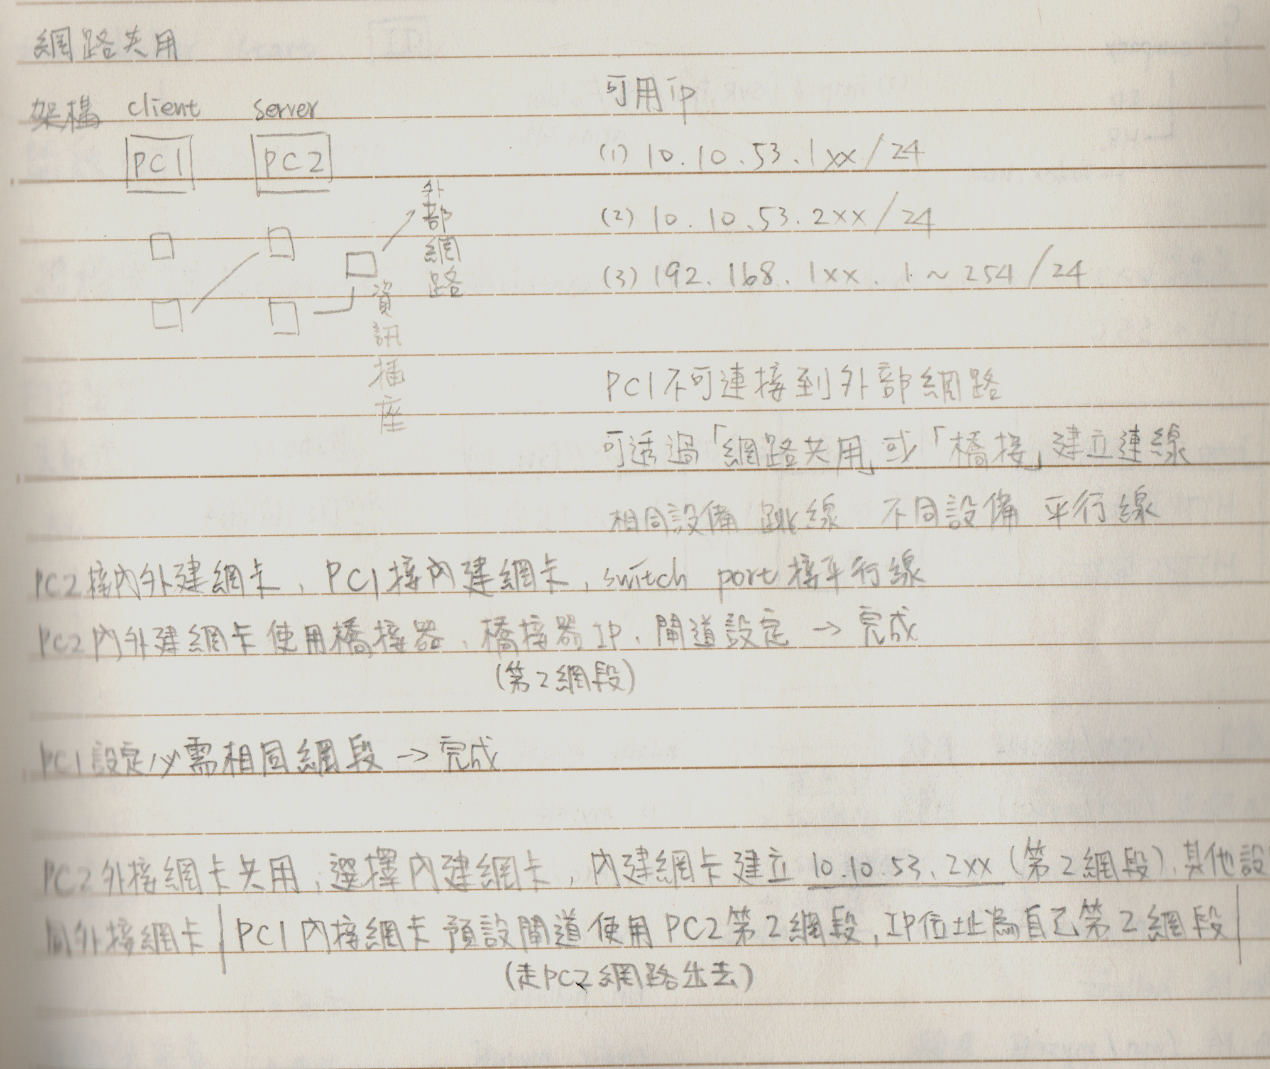 網路共用
架構 client server
PC1 PC2
外部網路
資訊插座
可用ip
(1) 10.10.53.1xx/24
(2) 10.10.53.2xx/24
(3) 192.168.1xx.1~254/24
PC1不可連接到外部網路
可透過「網路共用」或「橋接」建立連線
相同設備 跳線 不同設備 平行線
PC2接內外建網卡,PC1接內建網卡,switch port接平行線
PC2內外建網卡使用橋接器,橋接器IP,閘道設定→完成
(第2網段)
PC1設定必需相同網段→完成
PC2外接網卡共用,選擇內建網卡,內建網卡建立10.10.53.2xx(第2網段),其他設
同外接網卡|PC1內接網卡預設閘道使用PC2第2網段,IP位址為自己第2網段|
(走PC2網路出去)